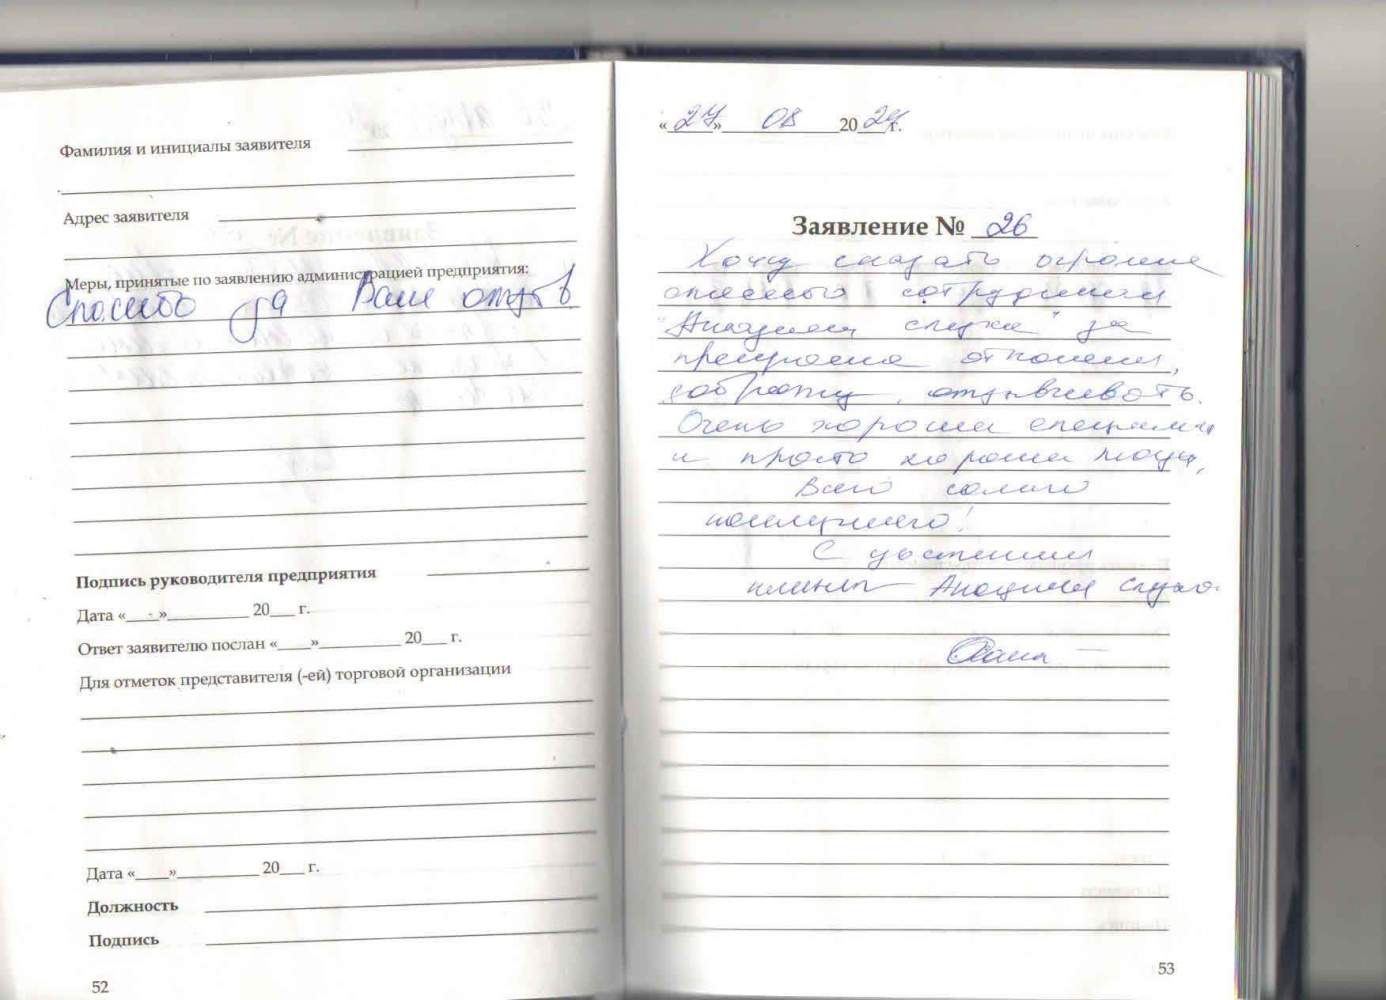 Фамилия и инициалы заявителя
Адрес заявителя
Меры, принятые по заявлению администрацией предприятия:
Спасибо за Ваш отзыв
Подпись руководителя предприятия
Дата «____»__________ 20___ г.
Ответ заявителю послан «____»__________ 20___ г.
Для отметок представителя (-ей) торговой организации
Дата «____»__________ 20___ г.
Должность
Подпись
52
«27» 08 2024 г.
Заявление № 26
Хочу сказать огромное
спасибо сотрудникам
"Академия слуха" за
прекрасное отношение,
доброту, отзывчивость.
Очень хорошие специалисты
и просто хорошие люди,
Всего самого
наилучшего!
С уважением
клиент Академии слуха.
53